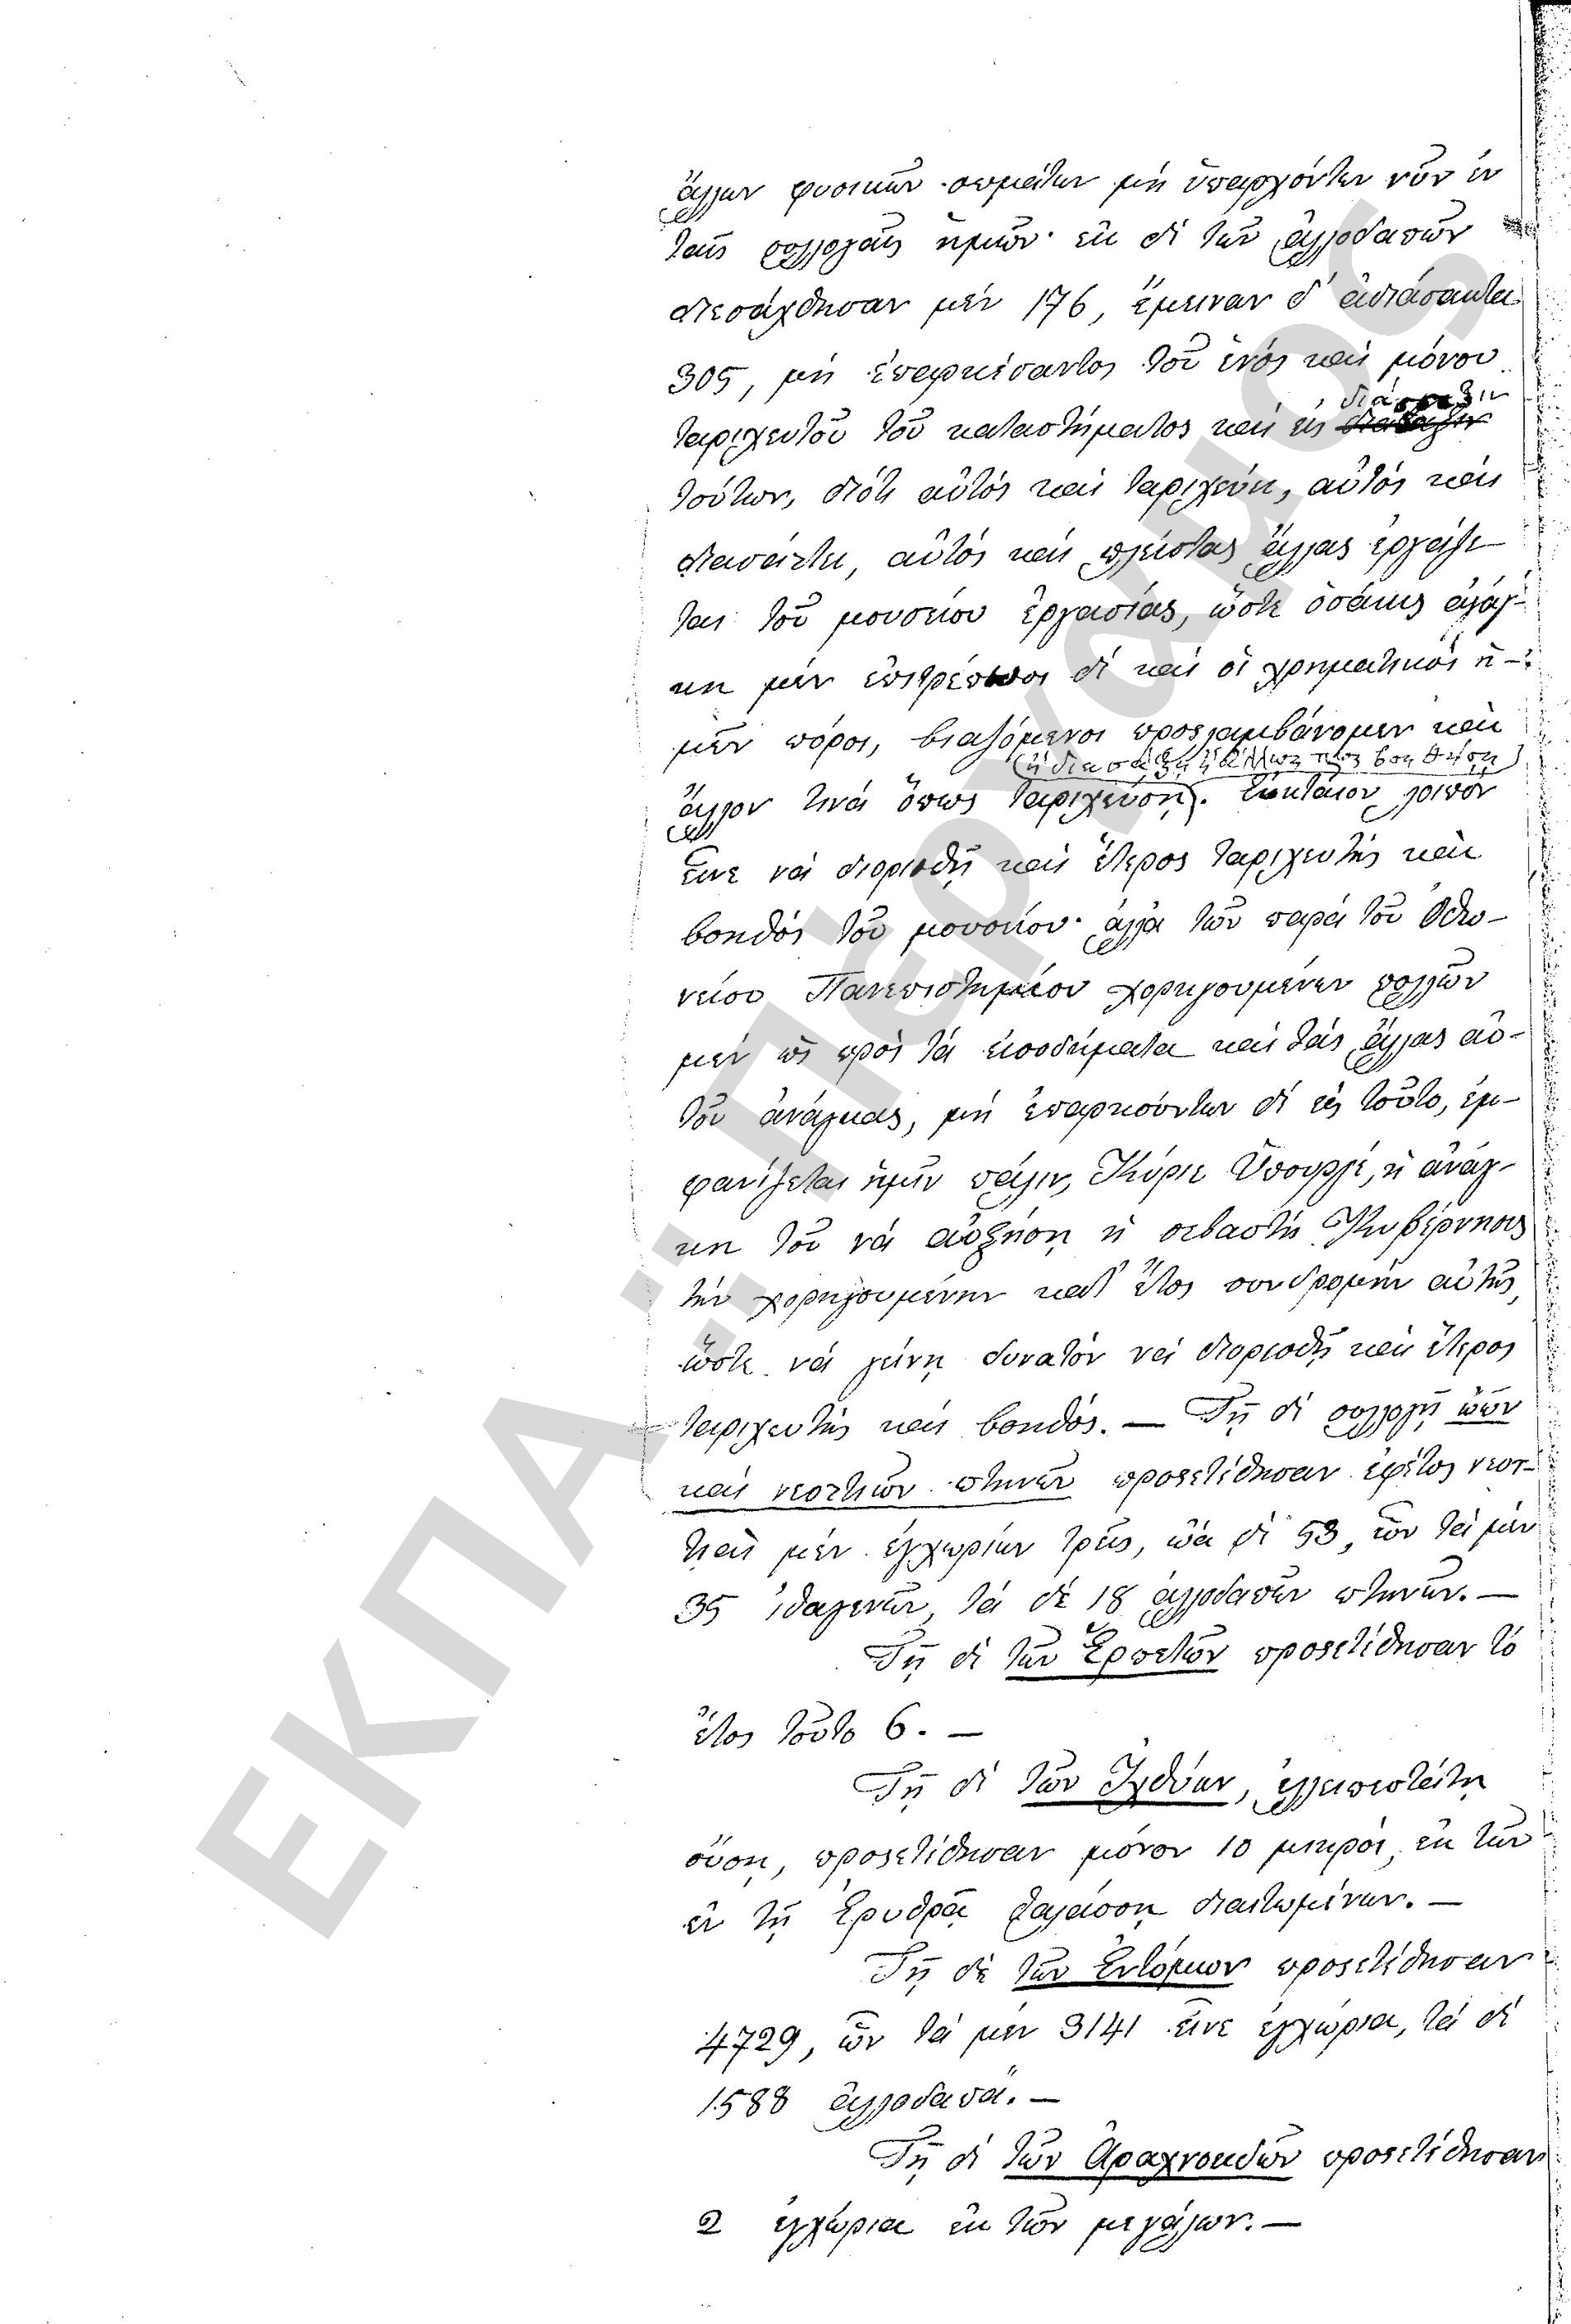 ἄλλων φυσικῶν σωμάτων μὴ ὑπαρχόντων νῦν ἐν
ταῖς συλλογαῖς ἡμῶν· ἐκ δὲ τῶν ἀλλοδαπῶν
διεσάχθησαν μὲν 176, ἔμειναν δ' ἀδιάσακτα
305, μὴ ἐπαρκέσαντος τοῦ ἑνὸς καὶ μόνου
διάσαξιν
ταριχευτοῦ τοῦ καταστήματος καὶ εἰς
τούτων, διότι αὐτὸς καὶ ταριχεύει, αὐτὸς καὶ
διασάττει, αὐτὸς καὶ πλείστας ἄλλας ἐργάζε-
ται τοῦ μουσείου ἐργασίας, ὥστε ὁσάκις ἀνάγ-
κη μὲν ἐπιτρέπωσι δὲ καὶ οἱ χρηματικοὶ ἡ-
μῶν πόροι, βιαζόμενοι προσλαμβάνομεν καὶ
(ἢ διασάξῃ ἢ ἄλλως πως βοηθήσῃ)
ἄλλον τινὰ ὅπως ταριχεύσῃ. Εὐκταῖον λοιπὸν
εἶνε νὰ διορισθῇ καὶ ἕτερος ταριχευτὴς καὶ
βοηθὸς τοῦ μουσείου· ἀλλὰ τῶν παρὰ τοῦ Ὀθω-
νείου Πανεπιστημείου χορηγουμένων πολλῶν
μὲν ὡς πρὸς τὰ εἰσοδήματα καὶ τὰς ἄλλας αὐ-
τοῦ ἀνάγκας, μὴ ἐπαρκούντων δὲ εἰς τοῦτο, ἐμ-
φανίζεται ἡμῖν πάλιν, Κύριε Ὑπουργέ, ἡ ἀνάγ-
κη τοῦ νὰ αὐξήσῃ ἡ σεβαστὴ Κυβέρνησις
τὴν χορηγουμένην κατ' ἔτος συνδρομὴν αὐτῆς,
ὥστε νὰ γείνῃ δυνατὸν νὰ διορισθῇ καὶ ἕτερος
ταριχευτὴς καὶ βοηθός. — Τῇ δὲ συλλογῇ ὠῶν
καὶ νεοττιῶν πτηνῶν προσετέθησαν ἐφέτος νεοτ-
τιαὶ μὲν ἐγχωρίων τρεῖς, ὠὰ δὲ 53, ὧν τὰ μὲν
35 ἰθαγενῶν, τὰ δὲ 18 ἀλλοδαπῶν πτηνῶν. —
Τῇ δὲ τῶν Ἑρπετῶν προσετέθησαν τὸ
ἔτος τοῦτο 6. —
Τῇ δὲ τῶν Ἰχθύων, ἐλλειπεστάτῃ
οὔσῃ, προσετέθησαν μόνον 10 μικροί, ἐκ τῶν
ἐν τῇ Ἐρυθρᾷ θαλάσσῃ διαιτωμένων. —
Τῇ δὲ τῶν Ἐντόμων προσετέθησαν
4729, ὧν τὰ μὲν 3141 εἶνε ἐγχώρια, τὰ δὲ
1588 ἀλλοδαπά. —
Τῇ δὲ τῶν Ἀραχνοειδῶν προσετέθησαν
2 ἐγχώρια ἐκ τῶν μεγάλων. —
ΕΚΠΑ: Πέργαμος